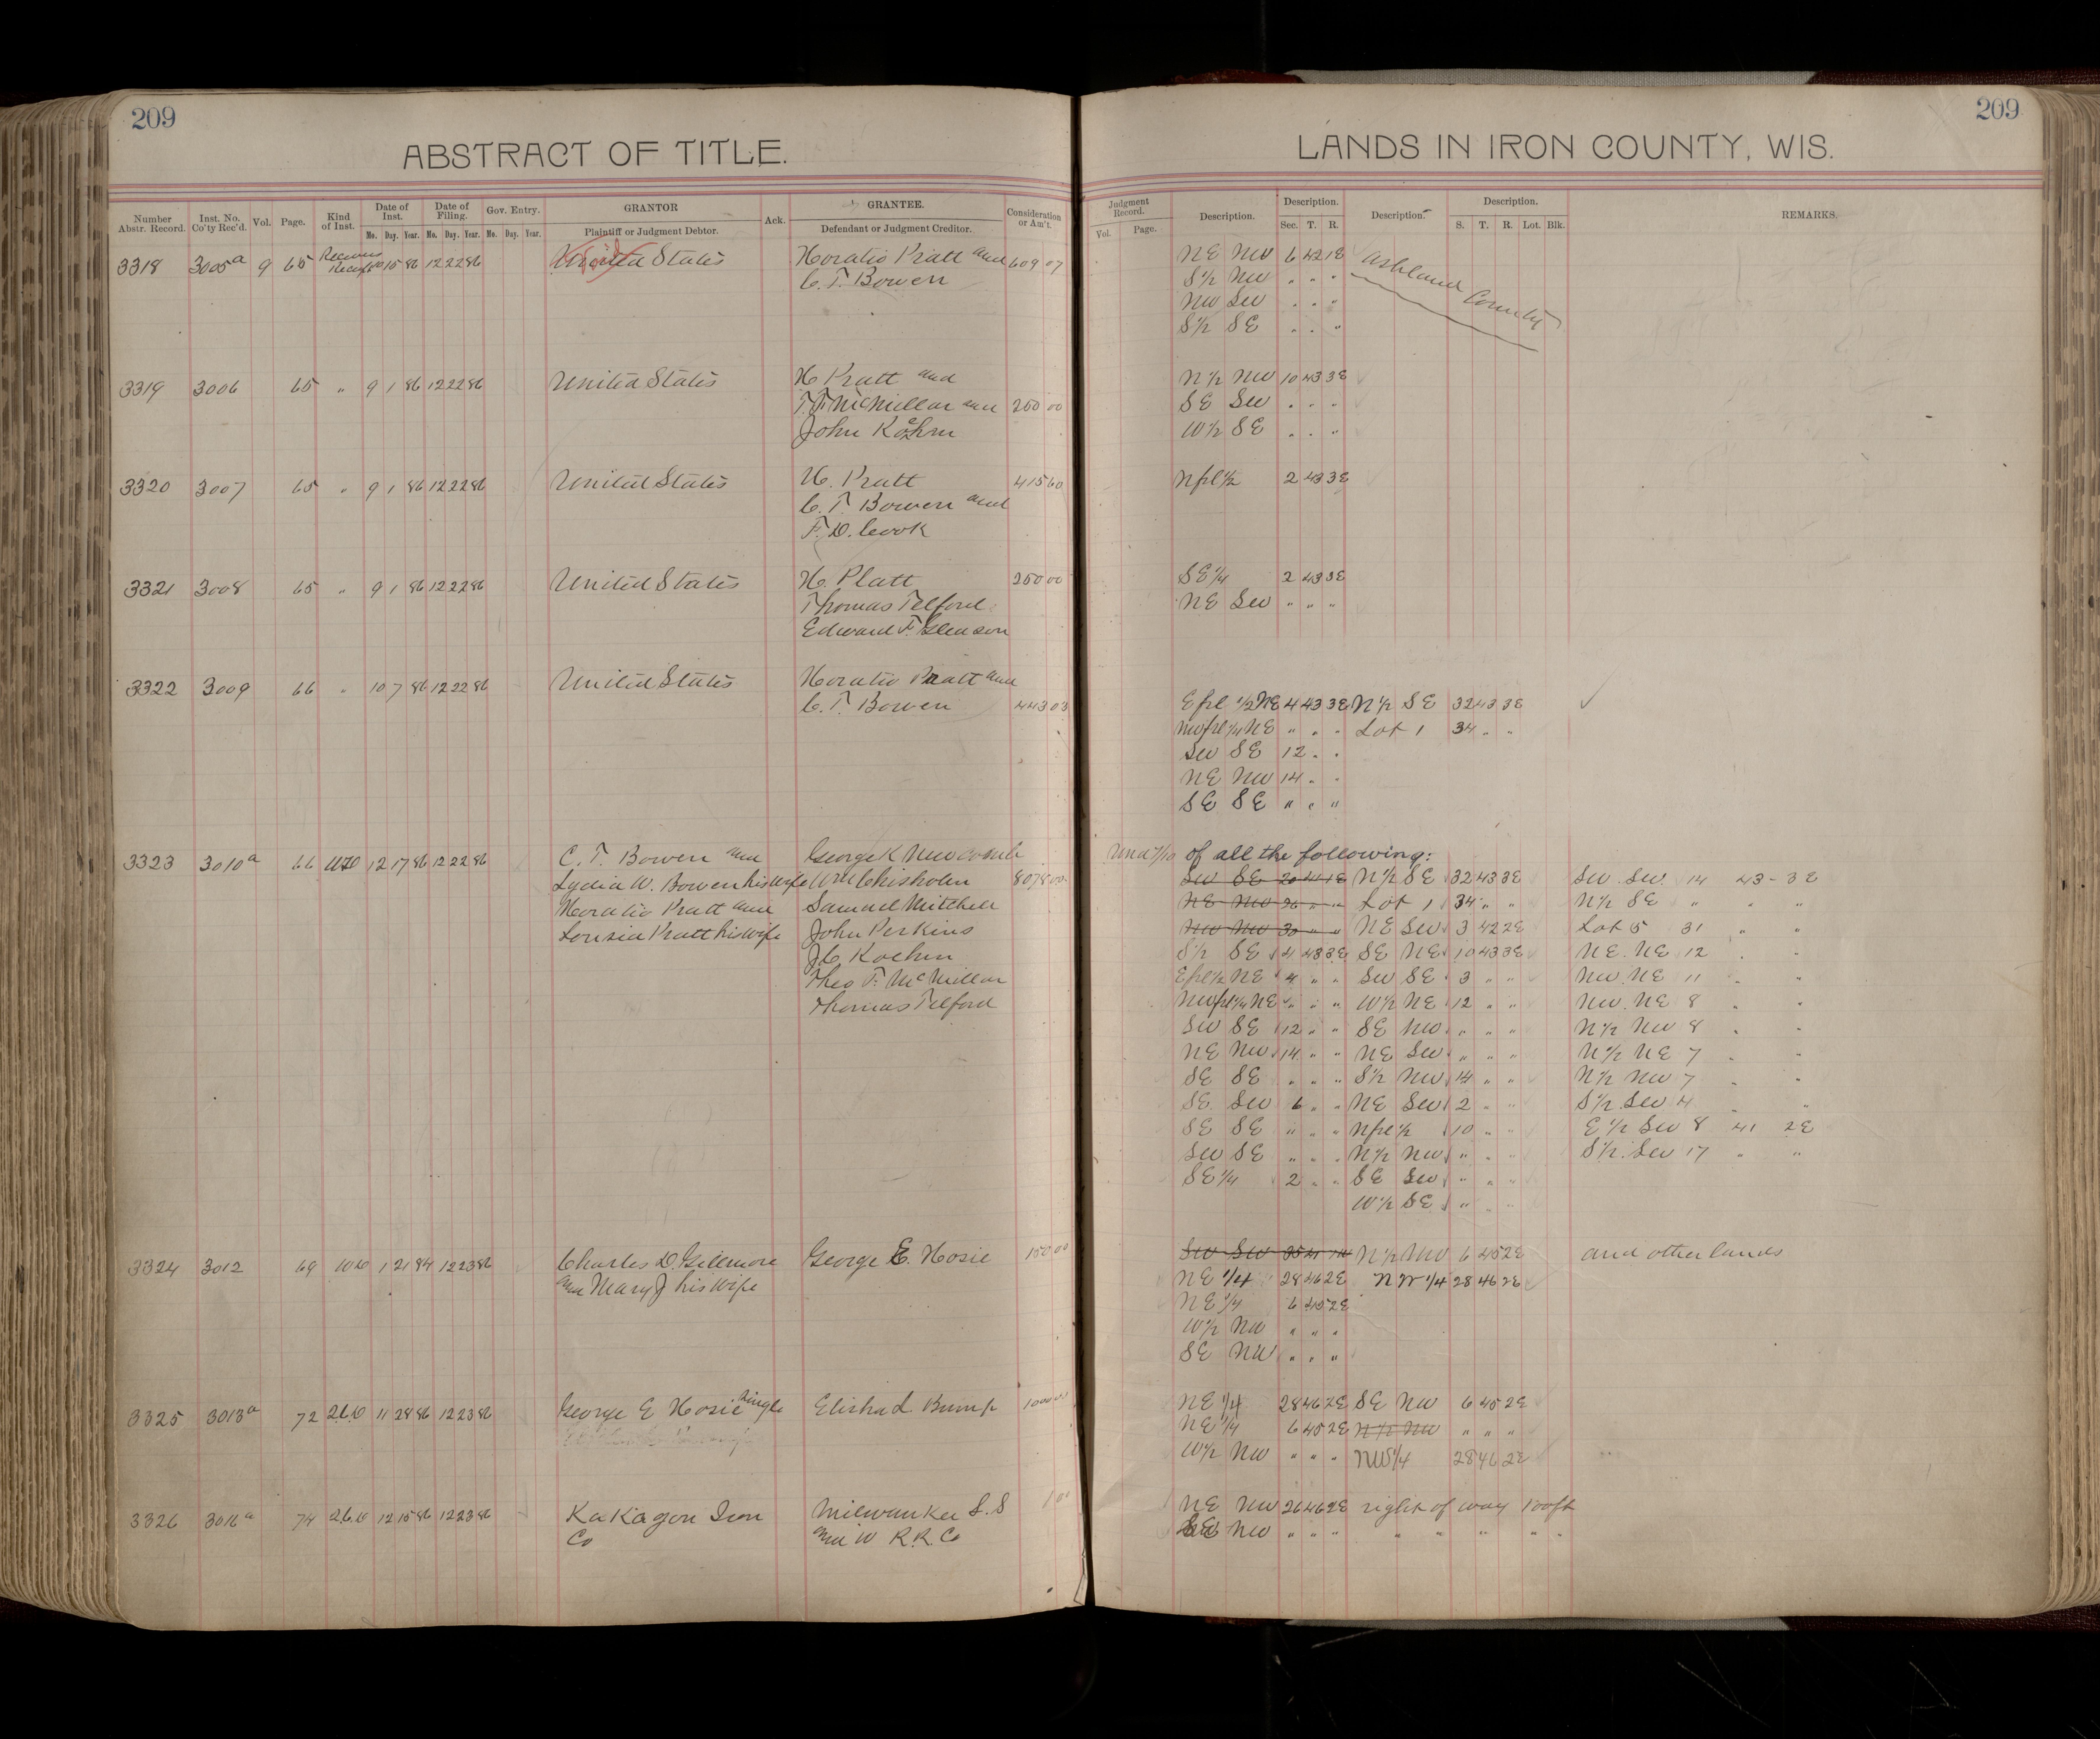 209
209
ABSTRACT OF TITLE.
LANDS IN IRON COUNTY, WIS.
Number Abstr. Record. Inst. No. Co'ty Rec'd. Vol. Page. Kind of Inst. Date of Inst. Mo. Day. Year. Date of Filing. Mo. Day. Year. Gov. Entry. Mo. Day. Year. GRANTOR Plaintiff or Judgment Debtor. Ack. GRANTEE. Defendant or Judgment Creditor. Consideration or Am't.
Judgment Record. Vol. Page. Description. Description. Sec. T. R. Description. Description. S. T. R. Lot. Blk. REMARKS.
3318 3005a 9 65 Receivers Receipt 10 15 86 12 22 86 United States Horatio Pratt and 609 07 NE NW 6 42 1E Ashland County
C. T. Bowen S½ NW " " "
NW SW " " "
S½ SE " " "
3319 3006 65 " 9 1 86 12 22 86 United States H Pratt and N½ NW 10 43 3E
T. F. McMillan and 200 00 SE SW " " "
John Koehn W½ SE " " "
3320 3007 65 " 9 1 86 12 22 86 United States H. Pratt 415 60 N frl ½ 2 43 3E
C. T. Bowen and
F. D. Cook
3321 3008 65 " 9 1 86 12 22 86 United States H. Platt 250 00 SE ¼ 2 43 3E
Thomas Telford NE SW " " "
Edward F. Gleason
3322 3009 66 " 10 7 86 12 22 86 United States Horatio Pratt and
C. T. Bowen 443 03 E frl ½ NE 4 43 3E N½ SE 32 43 3E
NW frl ¼ NE " " " Lot 1 34 " "
SW SE 12 " "
NE NW 14 " "
SE SE " " "
3323 3010a 66 WD 12 17 86 12 22 86 C. T. Bowen and George K Newcomb Und 7/10 of all the following:
Lydia W. Bowen his wife Wm Chisholm 8078 00 SW SE 20 41 1E N½ SE 32 43 3E SW. SW. 14 43 - 3E
Horatio Pratt and Samuel Mitchell NE NW 26 " " Lot 1 34 " " N½ SE " " "
Lousia Pratt his wife John Perkins NW NW 30 " " NE SW 3 42 2E Lot 5 31 " "
J C Koehn S½ SE 4 43 3E SE NE 10 43 3E NE. NE 12 " "
Theo F. McMillan E frl ½ NE 4 " " SW SE 3 " " NW. NE 11 " "
Thomas Telford NW frl ¼ NE " " " W½ NE 12 " " NW. NE 8 " "
SW SE 12 " " SE NW " " " N½ NW 8 " "
NE NW 14 " " NE SW " " " N½ NE 7 " "
SE SE " " " S½ NW 14 " " N½ NW 7 " "
SE SW 6 " " NE SW 2 " " S½ SW 4 " "
SE SE " " " N frl ½ 10 " " E½ SW 8 41 2E
SW SE " " " N½ NW " " " S½ SW 17 " "
SE ¼ 2 " " SE SW " " "
W½ SE " " "
3324 3012 69 WD 1 21 84 12 23 86 Charles D. Gillmore George E. Hosie 150 00 SW SW N½ NW 6 45 2E and other lands
and Mary J his wife NE ¼ 28 46 2E NW ¼ 28 46 2E
NE ¼ 6 45 2E
W½ NW " " "
SE NW " " "
3325 3013a 72 2.C.D 11 28 86 12 23 86 George E Hosie single Elisha L. Bump 1000 00 NE ¼ 28 46 2E SE NW 6 45 2E
NE ¼ 6 45 2E N½ NW " " "
W½ NW " " " NW ¼ 28 46 2E
3326 3016a 74 2.C.D 12 15 86 12 23 86 Ka Kagon Iron Milwaukee L. S 1 00 NE NW 26 46 2E right of way 100ft
Co and W R. R. Co SE NW " " " " " " "